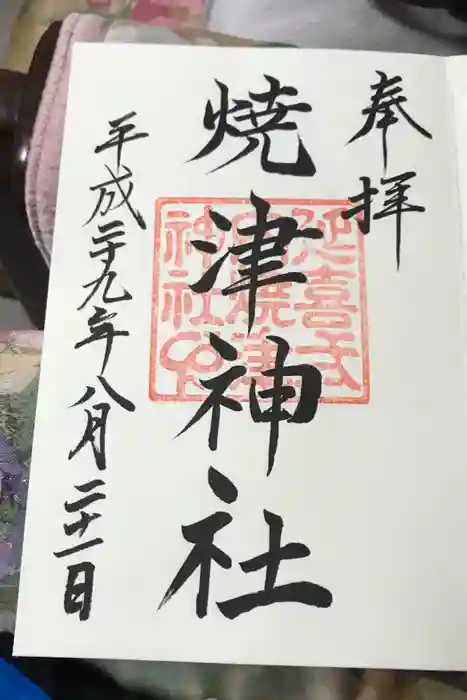 奉拝
焼津神社
平成二十九年八月二十一日
延喜式
神社